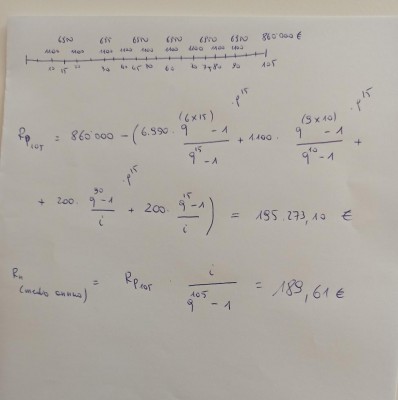 6590 6590 6590 6590 6590 6590 860'000 €
1100 1100 1100 1100 1100 1100 1100 1100 1100
10 15 20 30 40 45 50 60 70 75 80 90 105
Rp105 = 860'000 - ( 6.590 · q^(6x15) - 1 / q^15 - 1 · q^15 + 1100 · q^(9x10) - 1 / q^10 - 1 · q^15 +
+ 200 · q^90 - 1 / i · q^15 + 200 · q^15 - 1 / i ) = 195.273,10 €
Rn (medio annuo) = Rp105 · i / q^105 - 1 = 189,61 €